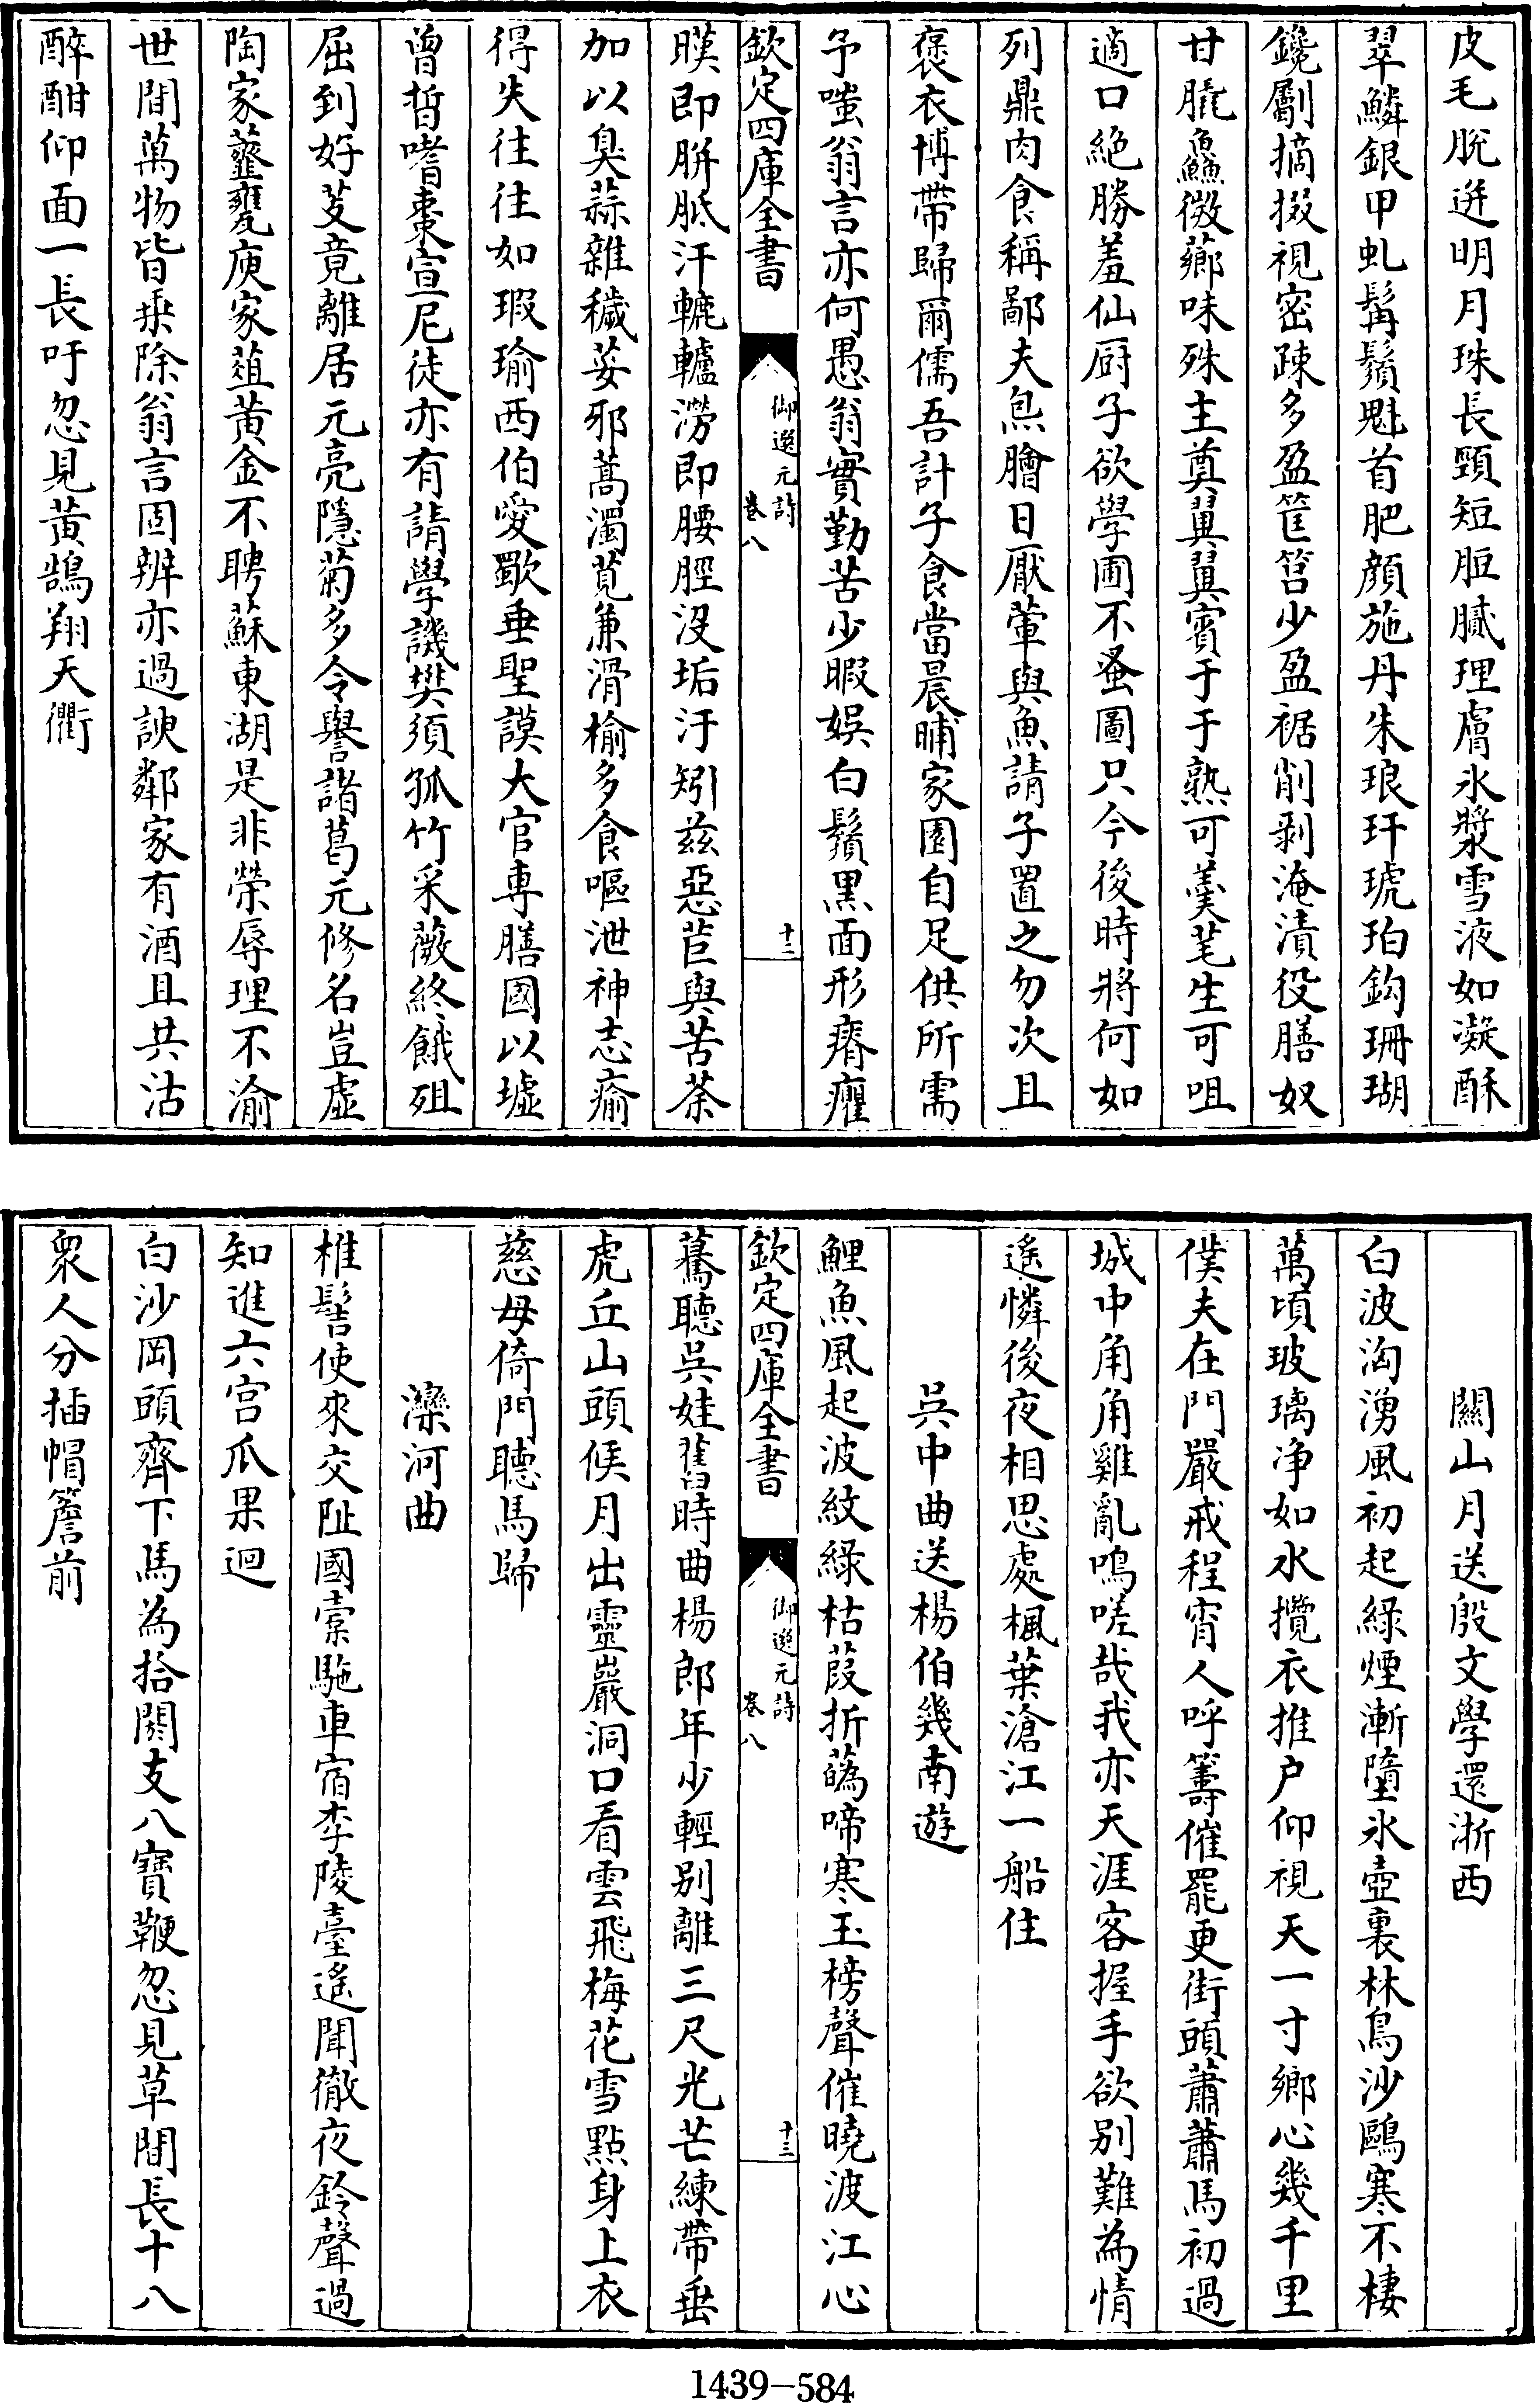 皮毛脫迸明月珠長頸短脰膩理膚冰漿雪液如凝酥
翠鱗銀甲虬髯鬚魁首肥顔施丹朱琅玕琥珀鈎珊瑚
鑱劚摘掇視密疎多盈筐筥少盈裾削剥淹漬役膳奴
甘脆鱻微薌味殊主奠翼翼賓于于熟可羹芼生可咀
適口絶勝羞仙厨子欲學圃不蚤圖只今後時將何如
列鼎肉食稱鄙夫炰膾日厭葷與魚請子置之勿次且
褒衣博帶歸爾儒吾計子食當晨晡家園自足供所需
予嗤翁言亦何愚翁實勤苦少暇娱白鬚黒面形瘠癯
欽定四庫全書
御選元詩
卷八
十二
暵即胼胝汗轆轤澇即腰脛没垢汙矧兹惡苣與苦荼
加以臭蒜雜穢荽邪蒿濁莧兼滑榆多食嘔泄神志瘉
得失往往如瑕瑜西伯愛歜垂聖謨大官専膳國以墟
曽晳嗜棗宣尼徒亦有請學譏樊須孤竹采薇終餓殂
屈到好芰竟離居元亮隱菊多令譽諸葛元修名豈虚
陶家虀甕庾家葅黄金不聘蘇東湖是非榮辱理不渝
世間萬物皆乗除翁言固辨亦過諛鄰家有酒且共沽
醉酣仰面一長吁忽見黄鵠翔天衢
關山月送殷文學還浙西
白波洶湧風初起緑煙漸墮氷壺裏林鳥沙鷗寒不棲
萬頃玻璃净如水攬衣推户仰視天一寸鄉心幾千里
僕夫在門嚴戒程宵人呼籌催罷更街頭蕭蕭馬初過
城中角角雞亂鳴嗟哉我亦天涯客握手欲别難為情
遥憐後夜相思處楓葉滄江一船住
吳中曲送楊伯幾南遊
鯉魚風起波紋緑枯葭折蒍啼寒玉榜聲催曉渡江心
欽定四庫全書
御選元詩
卷八
十三
驀聽吳娃舊時曲楊郎年少輕别離三尺光芒練帶垂
虎丘山頭候月出靈巖洞口看雲飛梅花雪點身上衣
慈母倚門聽馬歸
灤河曲
椎髻使來交阯國橐駞車宿李陵臺遥聞徹夜鈴聲過
知進六宫爪果迴
白沙岡頭齊下馬為拾闕支八寶鞭忽見草間長十八
衆人分插帽簷前
1439-584